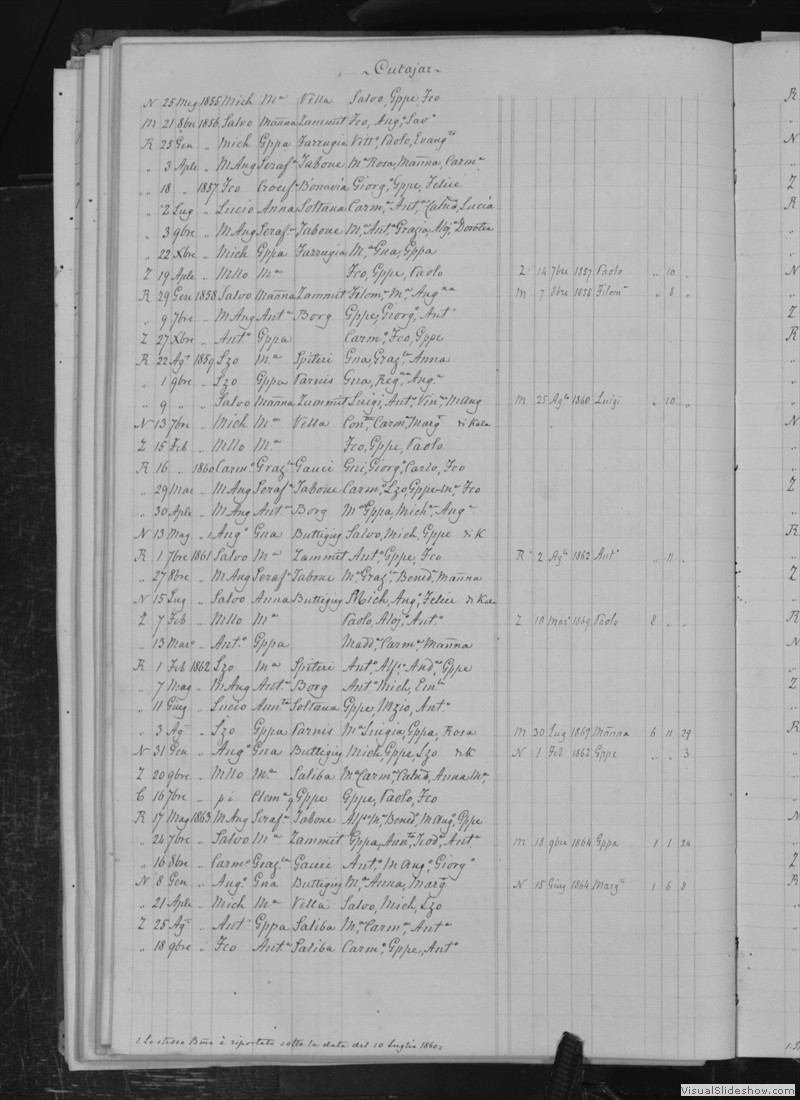 ~ Cutajar ~
N 25 Mag 1855 Mich Mª Vella Salvo, Gppe, Fco
M 21 8bre 1856 Salvo Mañna Zammit Fco, Angº, Savº
R 25 Gen „ Mich Gppa Farrugia Vittª, Paolo, Evangta
„ 3 Aple „ M Ang Serafª Tabone Mª Rosa, Mañna, Carmª
„ 18 „ 1857 Fco Crocif Bonavia Giorgº, Gppe, Felice
„ 2 Lug „ Lucio Anna Soltana Carmª, Antª, Catnª, Lucia
„ 3 9bre „ M Ang Serafª Tabone Mª, Antª Grazia, Aloj, Dorotea
„ 22 Xbre „ Mich Gppa Farrugia Mª, Gna, Gppa
Z 19 Aple „ Mllo Mª Fco, Gppe, Paolo Z 14 7bre 1857 Paolo „ 10 „
R 29 Gen 1858 Salvo Mañna Zammit Filomª, Mª, Angca M 7 8bre 1858 Filomª „ 8 „
„ 9 7bre „ M Ang Antª Borg Gppe, Giorgº, Antº
Z 27 Xbre „ Antº Gppa Carmº, Fco, Gppe
R 22 Agº 1859 Lzo Mª Spiteri Gna, Grazla, Anna
„ 1 9bre „ Lzo Gppa Parnis Gna, Regna, Angª
„ 9 „ „ Salvo Mañna Zammit Luigi, Antº, Vinº, M Ang M 25 Agto 1860 Luigi „ 10 „
N 13 7bre „ Mich Mª Vella Conta, Carmª, Margª di Kala
Z 15 Feb „ Mllo Mª Fco, Gppe, Paolo
R 16 „ 1860 Carmº Grazla Gauci Gni, Giorgº, Carlo, Fco
„ 29 Mar „ M Ang Serafª Tabone Carmº, Lzo, Gppe Mª, Fco
„ 30 Aple „ M Ang Antª Borg Mª Gppa, Michª, Angª
N 13 Mag „ 1 Angº Gna Buttigieg Salvo, Mich, Gppe di K
R 1 7bre 1861 Salvo Mª Zammit Antº, Gppe, Fco R 2 Agto 1862 Antº „ 11 „
„ 27 8bre „ M Ang Serafª Tabone Mª Grazla, Benedª, Mañna
N 15 Lug „ Salvo Anna Buttigieg Mich, Angº, Felice di Kala
Z 7 Feb „ Mllo Mª Paolo, Alojº, Antº Z 10 Mar 1869 Paolo 8 „ „
„ 13 Mar „ Antº Gppa Maddª, Carmª, Mañna
R 1 Feb 1862 Lzo Mª Spiteri Antº, Alfº, Andª, Gppe
„ 7 Mag „ M Ang Antª Borg Antº Mich,
„ 11 Giug „ Lucio Annta Soltana Gppe, Antº
„ 3 Agº „ Lzo Gppa Parnis Mª Luigia, Gppa, Rosa M 30 Lug 1869 Mañna 6 11 29
N 31 Gen „ Angº Gna Buttigieg Mich, Gppe, Lzo di K N 1 Feb 1862 Gppe „ „ 3
Z 20 9bre „ Mllo Mª Saliba Mª Carmª, Catnª, Anna Mª
C 16 7bre „ p i Gppe Gppe, Paolo, Fco
R 17 Mag 1863 M Ang Serafª Tabone Alfº Mª, Benedº, M Angº, Gppe
„ 24 7bre „ Salvo Mª Zammit Gppa, Annta, Teodª, Antª M 18 9bre 1864 Gppa 1 1 24
„ 16 8bre „ Carmº Grazla Gauci Antº, M Angº, Giorgº
N 8 Gen „ Angº Gna Buttigieg Mª, Anna, Margª N 15 Giug 1864 Margª 1 6 8
„ 21 Aple „ Mich Mª Vella Salvo, Mich, Lzo
Z 25 Agº „ Antº Gppa Saliba Mª, Carmª, Antª
„ 18 9bre „ Fco Antª Saliba Carmº, Gppe, Antº
1. Lo stesso Bmo è riportato sotto la data del 10 Luglio 1860.
VisualSlideshow.com